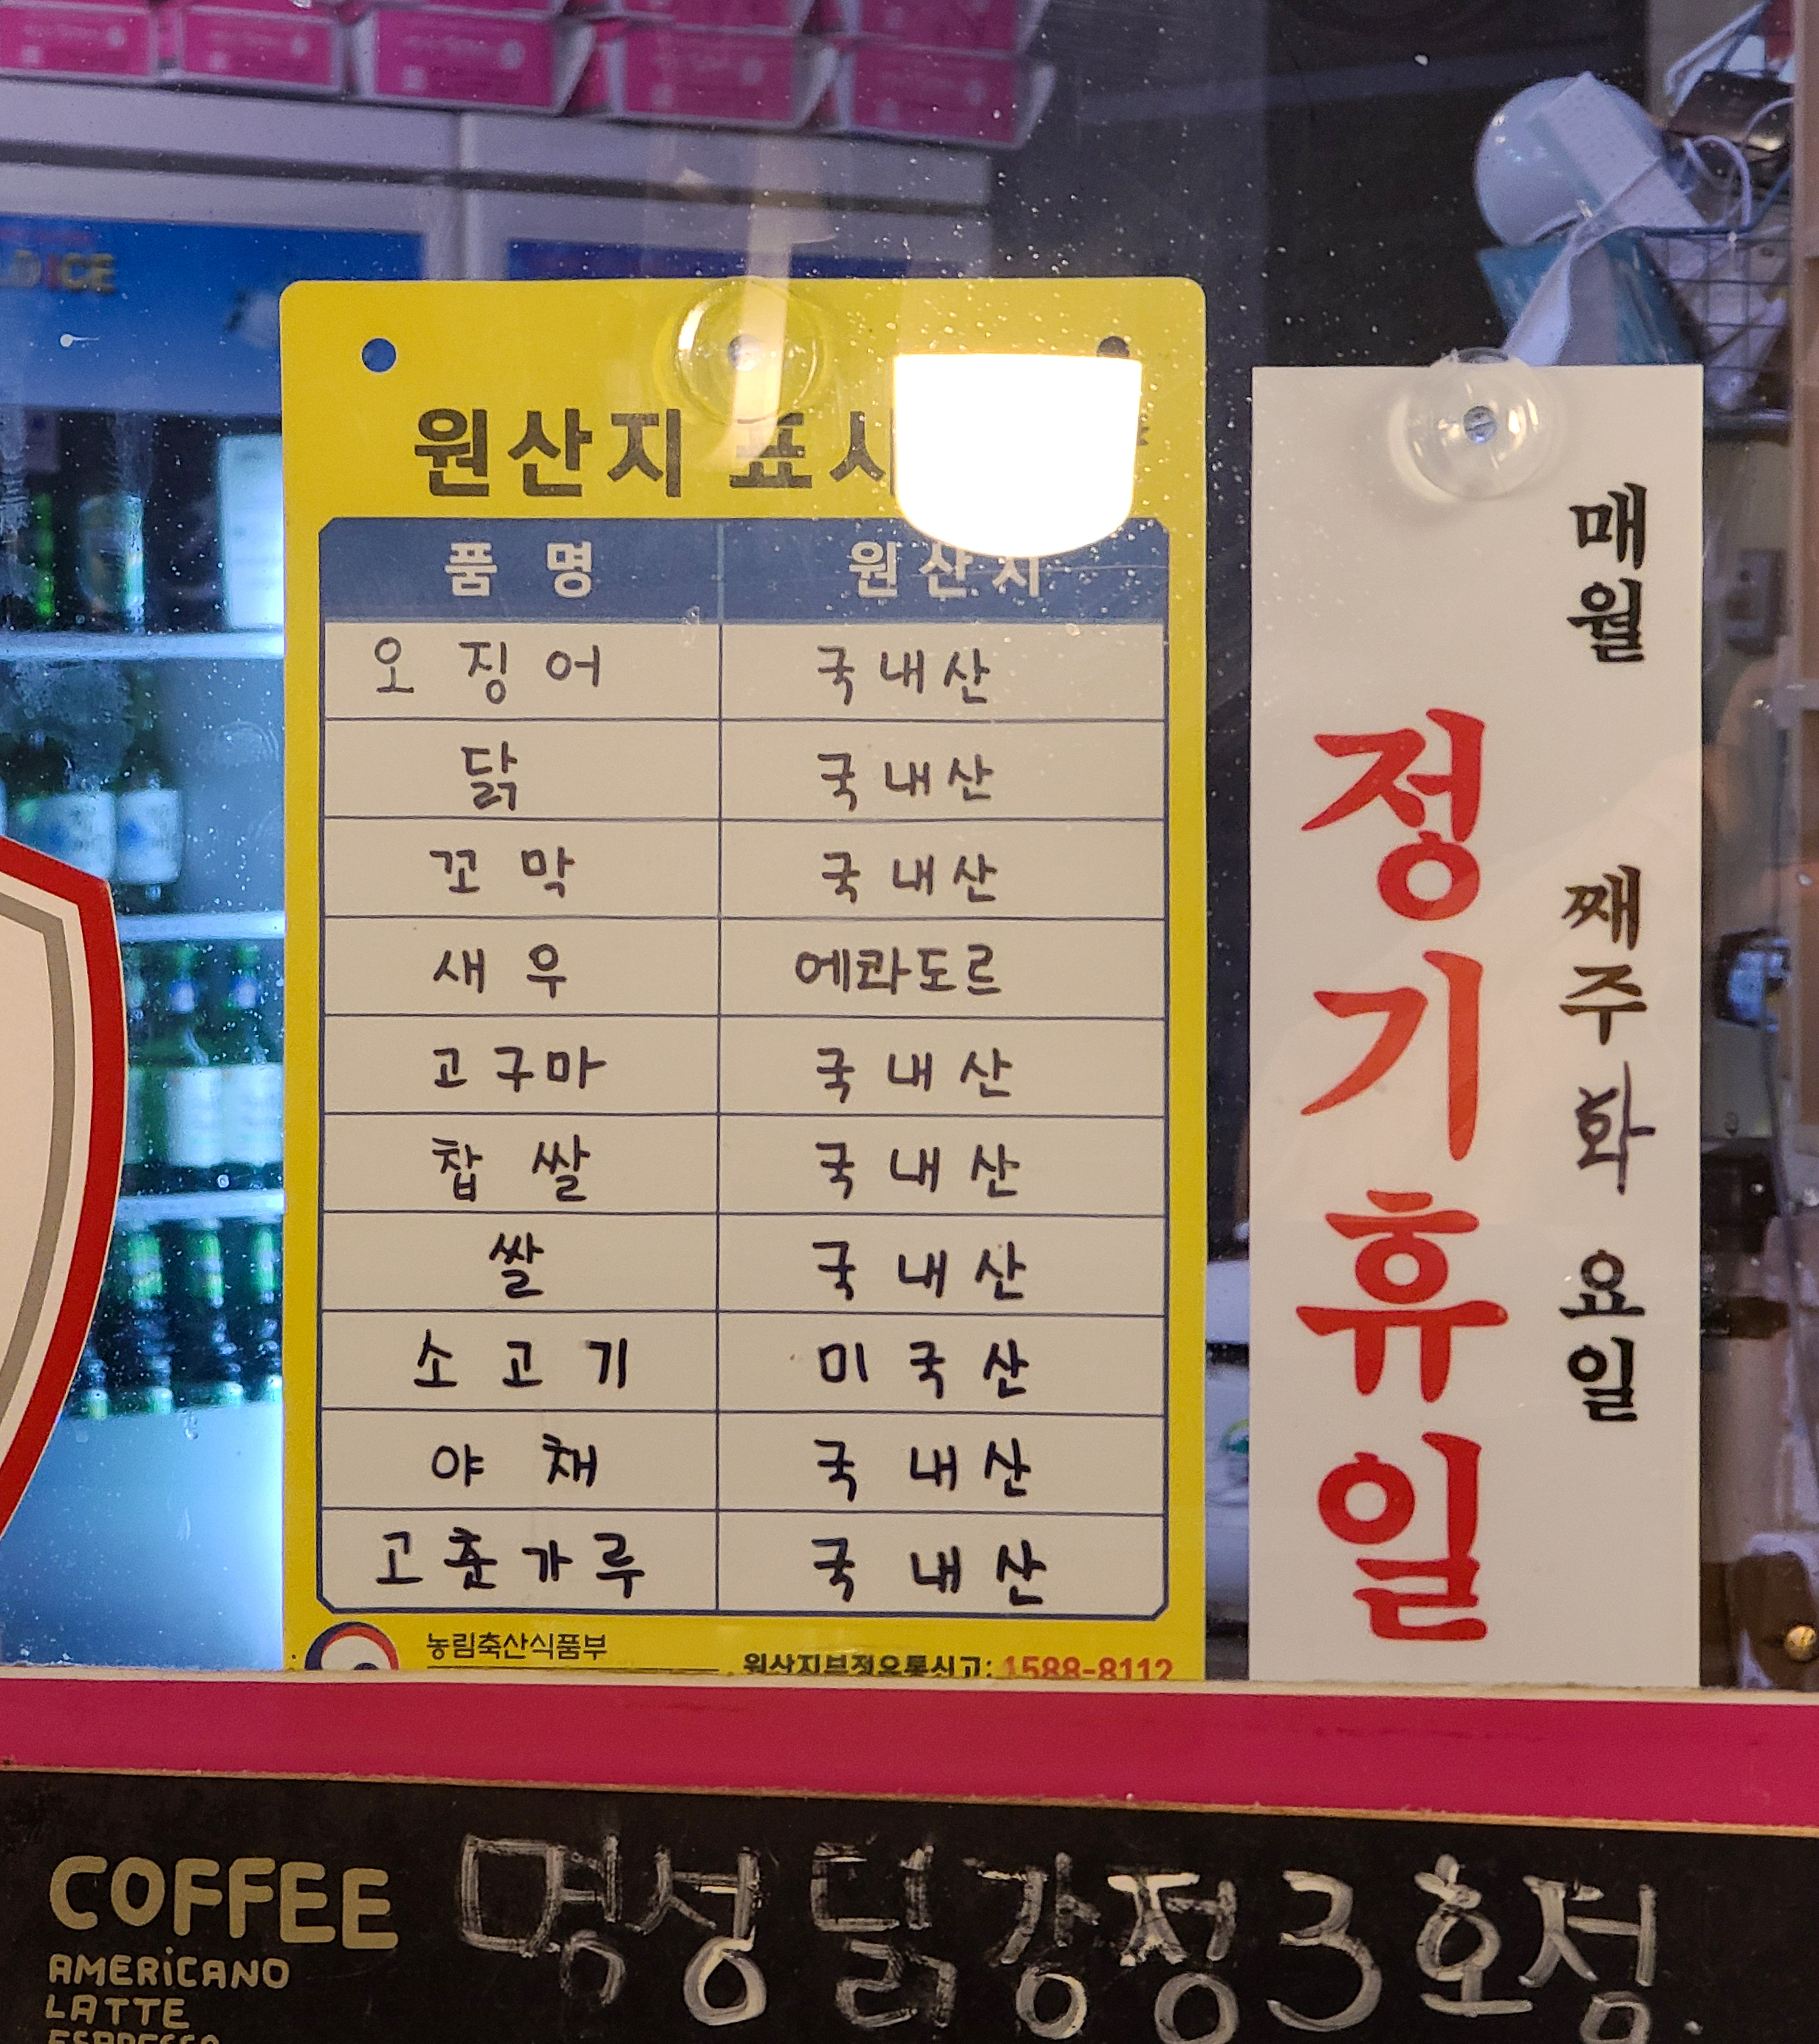 원산지 표시
품명 원산지
오징어 국내산
닭 국내산
꼬막 국내산
새우 에콰도르
고구마 국내산
찹쌀 국내산
쌀 국내산
소고기 미국산
야채 국내산
고춘가루 국내산
농림축산식품부
원산지부정유통신고: 1588-8112
매월 째주 화요일
정기휴일
COFFEE
AMERiCANO
LATTE
ESPRESSO
명성닭강정3호점.
ICE